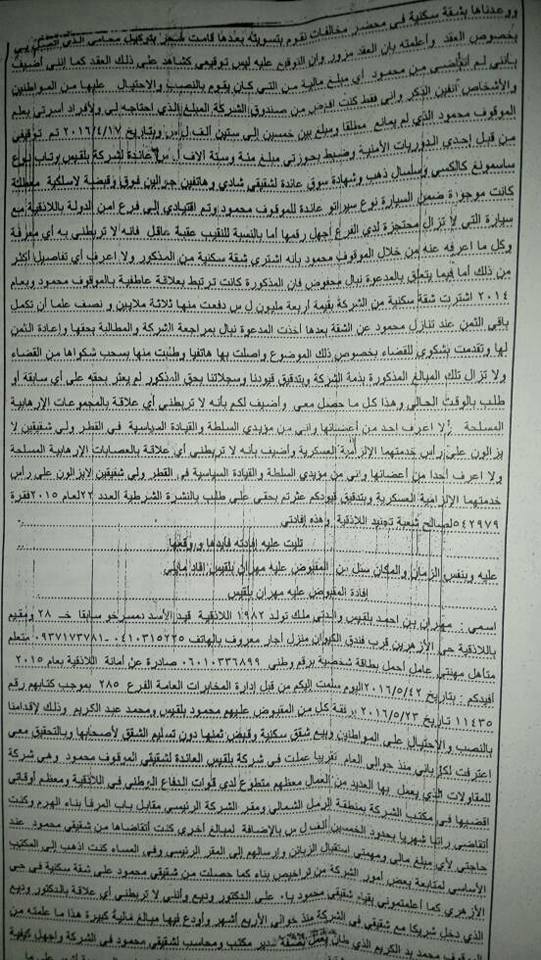 ووعدناها بشقة سكنية في محضر مخالفات نقوم بتسويته بعدها قامت سحر بتوكيل محامي الذي اتصل بي
بخصوص العقد وأعلمته بان العقد مزور وان التوقيع عليه ليس توقيعي كشاهد على ذلك العقد كما إنني أضيف
بأنني لم أتقاضى من محمود أي مبلغ مالية من التي كان يقوم بالنصب والاحتيال عليها من المواطنين
والأشخاص آنفين الذكر واني فقط كنت اقبض من صندوق الشركة المبلغ الذي احتاجه لي ولأفراد أسرتي بعلم
الموقوف محمود الذي لم يمانع مطلقا ومبلغ بين خمسين إلى ستين ألف ل س وبتاريخ ٢٠١٦/٤/١٧ تم توقيفي
من قبل إحدى الدوريات الأمنية وضبط بحوزتي مبلغ مئة وستة آلاف ل س عائدة لشركة بلقيس وتاب نوع
سامسونغ كالكسي وسلسال ذهب وشهادة سوق عائدة لشقيقي شادي وهاتفين جوالين فوق وقبضة لاسلكية معطلة
كانت موجودة ضمن السيارة نوع سيراتو عائدة للموقوف محمود وتم اقتيادي إلى فرع امن الدولة باللاذقية مع
سيارة التي لا تزال محتجزة لدى الفرع أجهل رقمها أما بالنسبة للنقيب عقبة عاقل فانه لا تربطني به أي معرفة
وكل ما اعرفه عنه من خلال الموقوف محمود بأنه اشترى شقة سكنية من المذكور ولا اعرف أي تفاصيل أكثر
من ذلك أما فيما يتعلق بالمدعوة نبال محفوض فإن المذكورة كانت ترتبط بعلاقة عاطفية بالموقوف محمود وبعام
٢٠١٤ اشترت شقة سكنية من الشركة بقيمة أربعة مليون ل س دفعت منها ثلاثة ملايين و نصف علما أن تكمل
باقي الثمن عند تنازل محمود عن الشقة بعدها أخذت المدعوة نبال بمراجعة الشركة والمطالبة بحقها وإعادة الثمن
لها وتقدمت بشكوى للقضاء بخصوص ذلك الموضوع واتصلت بها هاتفيا وطلبت منها بسحب شكواها من القضاء
ولا تزال تلك المبالغ المذكورة بذمة الشركة وبتدقيق قيودنا وسجلاتنا بحق المذكور لم يعثر بحقه على أي سابقة أو
طلب بالوقت الحالي وهذا كل ما حصل معي وأضيف لكم بأنه لا تربطني أي علاقة بالمجموعات الإرهابية
المسلحة ولا اعرف احد من أعضائها واني من مؤيدي السلطة والقيادة السياسية في القطر ولي شقيقين لا
يزالون على رأس خدمتهما الإلزامية العسكرية وأضيف بأنه لا تربطني أي علاقة بالعصابات الإرهابية المسلحة
ولا اعرف أحدا من أعضائها واني من مؤيدي السلطة والقيادة السياسية في القطر ولي شقيقين لايزالون على رأس
خدمتهما الإلزامية العسكرية وبتدقيق قيودكم عثرتم بحقي على طلب بالنشرة الشرطية العدد ٢٢لعام ٢٠١٥فقرة
٥٤٢٩٧٩لصالح شعبة تجنيد اللاذقية وهذه إفادتي
تليت عليه إفادته فأيدها ووقعها
عليه وبنفس الزمان والمكان سئل من المقبوض عليه مهران بلقيس أفاد مايلي
إفادة المقبوض عليه مهران بلقيس
اسمي : مهران بن احمد بلقيس والدتي ملك تولد ١٩٨٢ اللاذقية قيد الأسد دمسرخو سابقا خـ ٢٨ ومقيم
باللاذقية حي الأزهري قرب فندق الكيوان منزل أجار معروف بالهاتف ٠٤١٠٣١٥٢٢٥ -٠٩٣٧١٧٣٧٨١ متعلم
متأهل مهنتي عامل احمل بطاقة شخصية برقم وطني ٠٦٠١٠٣٣٦٨٩٩ صادرة عن أمانة اللاذقية بعام ٢٠١٥
أفيدكم : بتاريخ ٢٠١٦/٥/٤٢اليوم سلمت إليكم من قبل إدارة المخابرات العامة الفرع ٢٨٥ بموجب كتابهم رقم
١١٤٣٥ تاريخ ٢٠١٦/٥/٢٣ برفقة كل من المقبوض عليهم محمود بلقيس ومحمد عبد الكريم وذلك لإقدامنا
بالنصب والاحتيال على المواطنين وبيع شقق سكنية وقبض ثمنها دون تسليم الشقق لأصحابها وبالتحقيق معي
اعترفت لكم باني منذ حوالي العام تقريبا عملت في شركة بلقيس العائدة لشقيقي الموقوف محمود وهي شركة
للمقاولات الذي يعمل بها العديد من العمال معظمهم متطوع لدى قوات الدفاع الوطني في اللاذقية ومعظم أوقاتي
اقضيها في مكتب الشركة بمنطقة الرمل الشمالي ومقر الشركة الرئيسي مقابل باب المرفأ بناء الهرم وكنت
أتقاضى راتبا شهريا بحدود الخمسين ألف ل س بالإضافة لمبالغ أخرى كنت أتقاضاها من شقيقي محمود عند
حاجتي لأي مبلغ مالي ومهمتي استقبال الزبائن وإرسالهم إلى المقر الرئيسي وفي المساء كنت اذهب إلى المكتب
الأساسي لمتابعة بعض أمور الشركة من تراخيص بناء كما حصلت من شقيقي محمود على شقة سكنية في حي
الأزهري كما أعلمتموني بقيام شقيقي محمود على الدكتور وديع وأنني لا تربطني أي علاقة بالدكتور وديع
الذي دخل شريكا مع شقيقي في الشركة منذ حوالي الأربع أشهر وأودع فيها مبالغ مالية كبيرة هذا ما علمته من
الموقوف محمد عبد الكريم الذي كان يعمل بصفة مدير مكتب ومحاسب لشقيقي محمود في الشركة واجهل كيفية